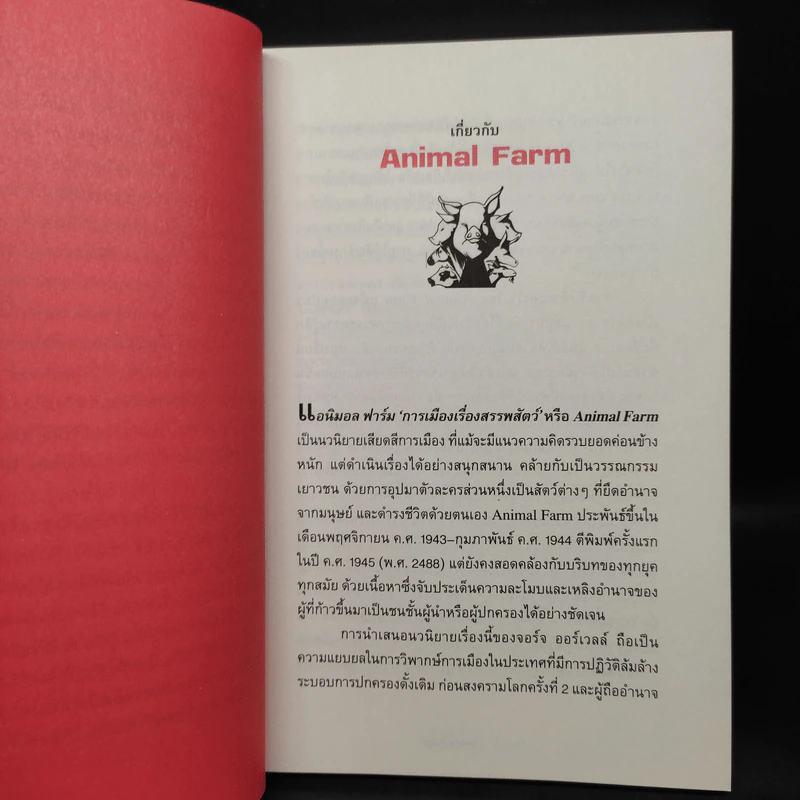 เกี่ยวกับ
Animal Farm
แอนิมอล ฟาร์ม ‘การเมืองเรื่องสรรพสัตว์’ หรือ Animal Farm
เป็นนวนิยายเสียดสีการเมือง ที่แม้จะมีแนวความคิดรวบยอดค่อนข้าง
หนัก แต่ดำเนินเรื่องได้อย่างสนุกสนาน คล้ายกับเป็นวรรณกรรม
เยาวชน ด้วยการอุปมาตัวละครส่วนหนึ่งเป็นสัตว์ต่างๆ ที่ยึดอำนาจ
จากมนุษย์ และดำรงชีวิตด้วยตนเอง Animal Farm ประพันธ์ขึ้นใน
เดือนพฤศจิกายน ค.ศ. 1943–กุมภาพันธ์ ค.ศ. 1944 ตีพิมพ์ครั้งแรก
ในปี ค.ศ. 1945 (พ.ศ. 2488) แต่ยังคงสอดคล้องกับบริบทของทุกยุค
ทุกสมัย ด้วยเนื้อหาซึ่งจับประเด็นความละโมบและเหลิงอำนาจของ
ผู้ที่ก้าวขึ้นมาเป็นชนชั้นผู้นำหรือผู้ปกครองได้อย่างชัดเจน
การนำเสนอนวนิยายเรื่องนี้ของจอร์จ ออร์เวลล์ ถือเป็น
ความแยบยลในการวิพากษ์การเมืองในประเทศที่มีการปฏิวัติล้มล้าง
ระบอบการปกครองดั้งเดิม ก่อนสงครามโลกครั้งที่ 2 และผู้ถืออำนาจ